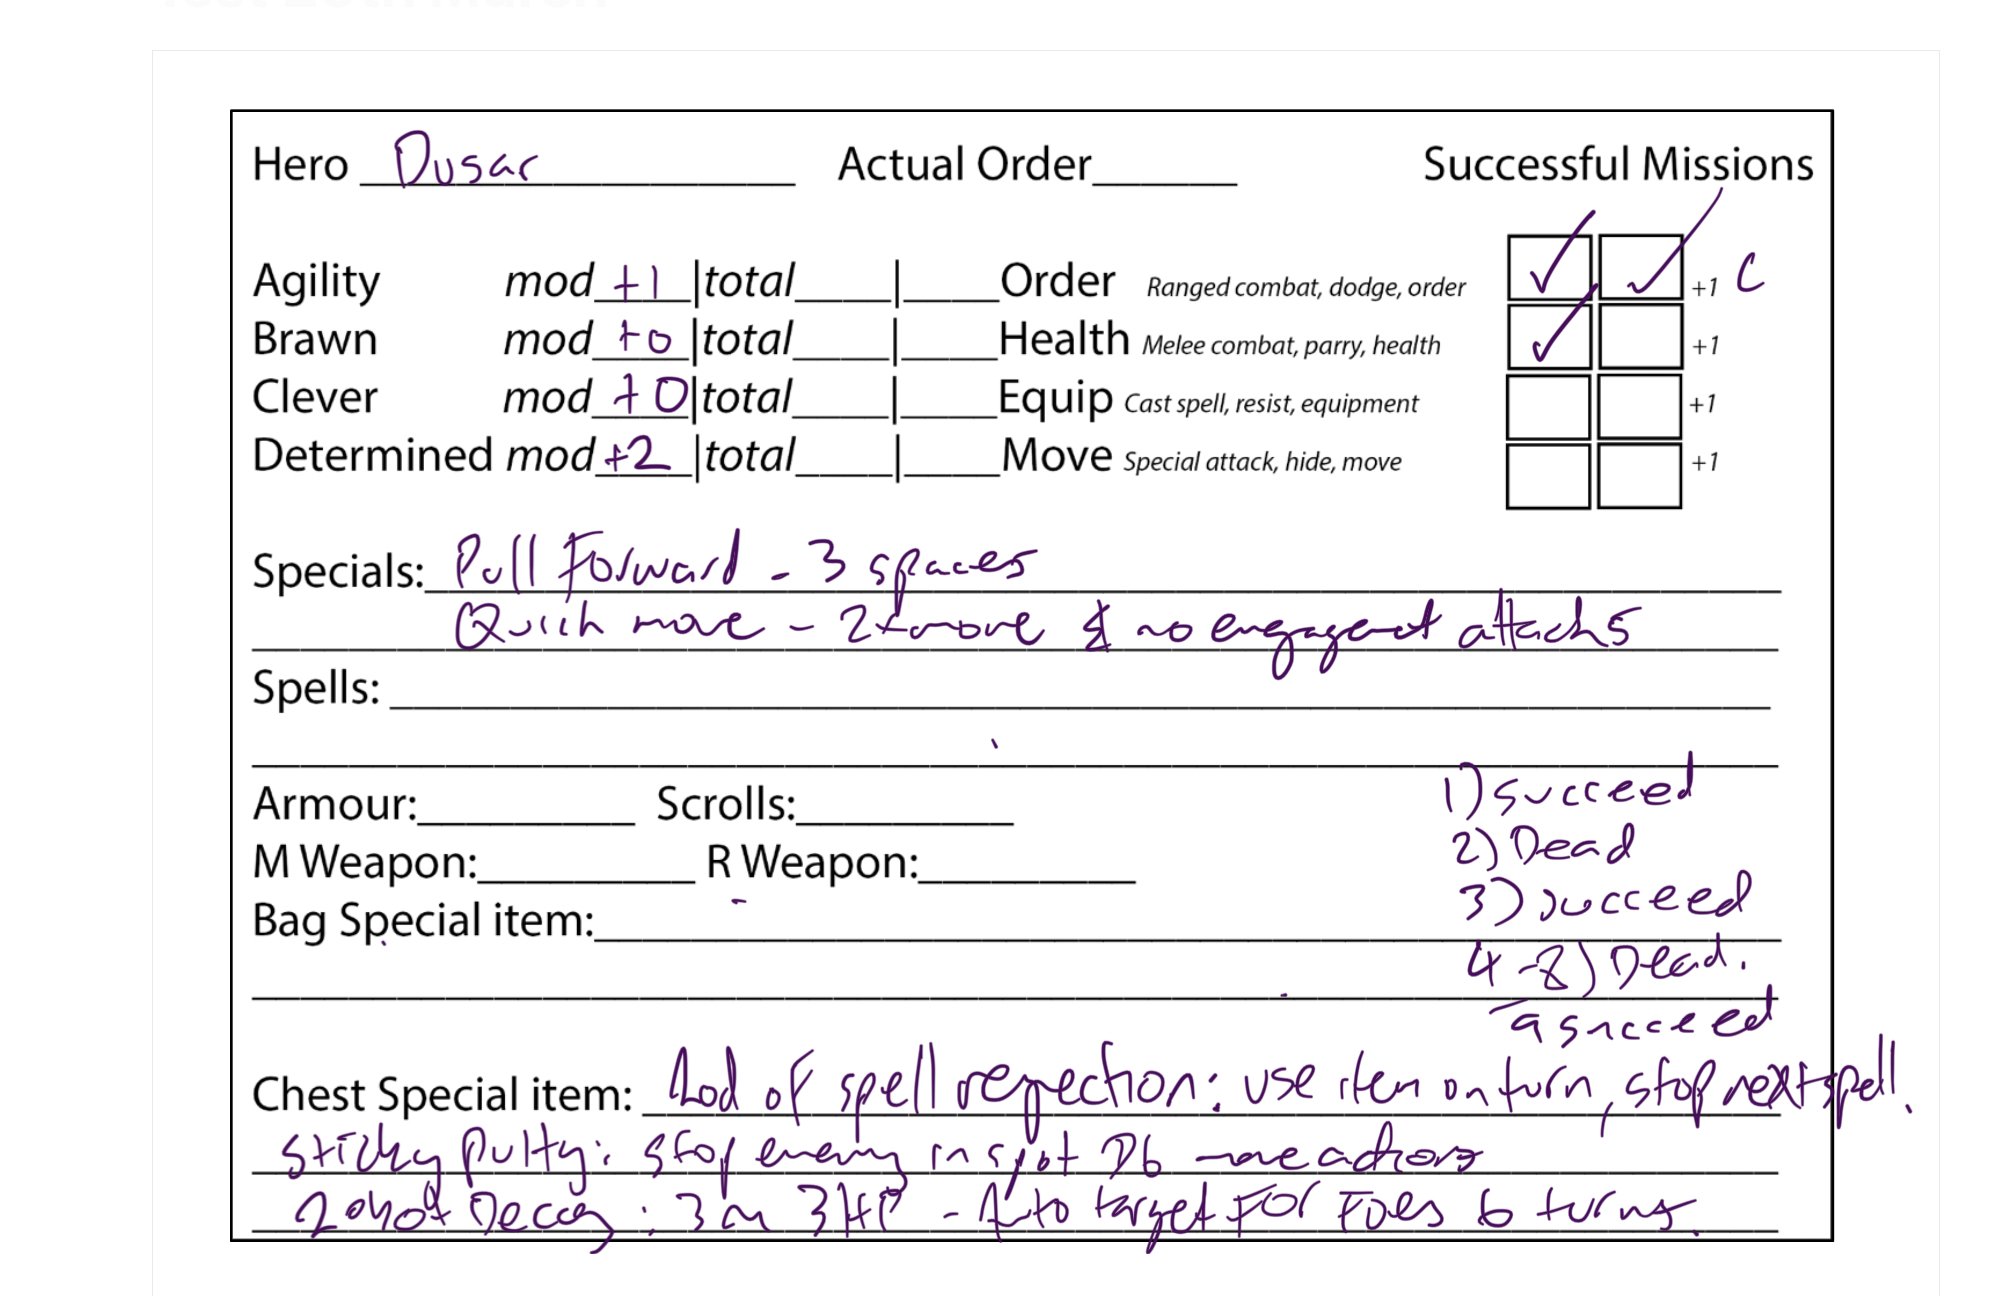 Hero Dusar Actual Order______ Successful Missions
Agility mod +1 |total____|____Order Ranged combat, dodge, order +1 C
Brawn mod +0 |total____|____Health Melee combat, parry, health +1
Clever mod +0 |total____|____Equip Cast spell, resist, equipment +1
Determined mod +2 |total____|____Move Special attack, hide, move +1
Specials: Pull Forward - 3 spaces
Quick move - 2x move & no engagement attacks
Spells:
1) succeed
Armour:_________ Scrolls:_________
2) Dead
M Weapon:_________ R Weapon:_________
3) succeed
Bag Special item:
4-8) Dead.
9 succeed
Chest Special item: Rod of spell rejection: use item on turn, stop next spell.
Sticky Putty: stop enemy in spot D6 move actions
Decoy: 3 3HP - Auto target For Foes 6 turns.